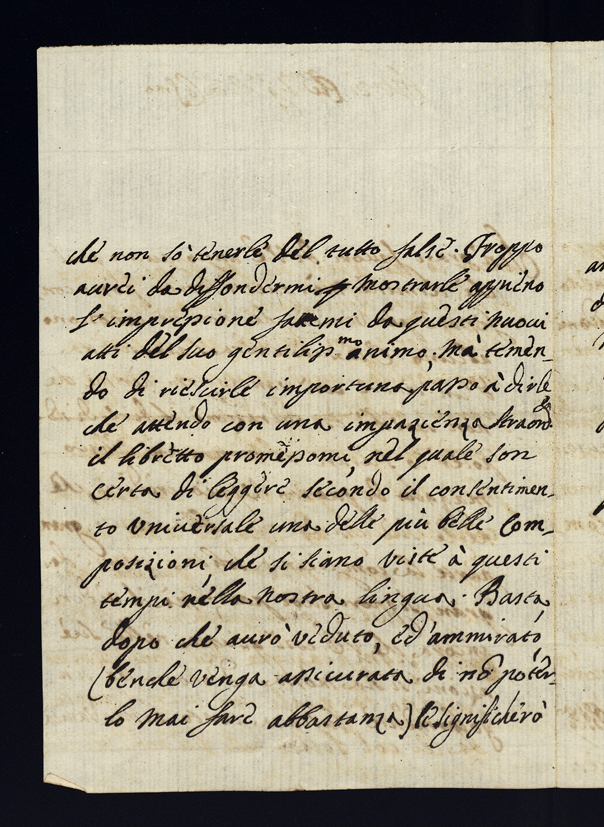 che non sò tenerle del tutto false. Troppo
aurei da diffondermi p mostrarle appieno
l'impressione fattemi da questi nuoui
atti del suo gentiliss.mo animo. Mà temen-
do di riescirle importuna, passo à dirle
che attendo con una impazienza straord.
il libretto promessomi, nel quale son
certa di leggere secondo il consentimen-
to universale una delle più belle Com-
posizioni che si siano viste à questi
tempi nella nostra lingua. Basta,
dopo che aurò veduto, ed ammirato
(benche venga assicurata di nõ poter-
lo mai fare abbastanza) le significherò